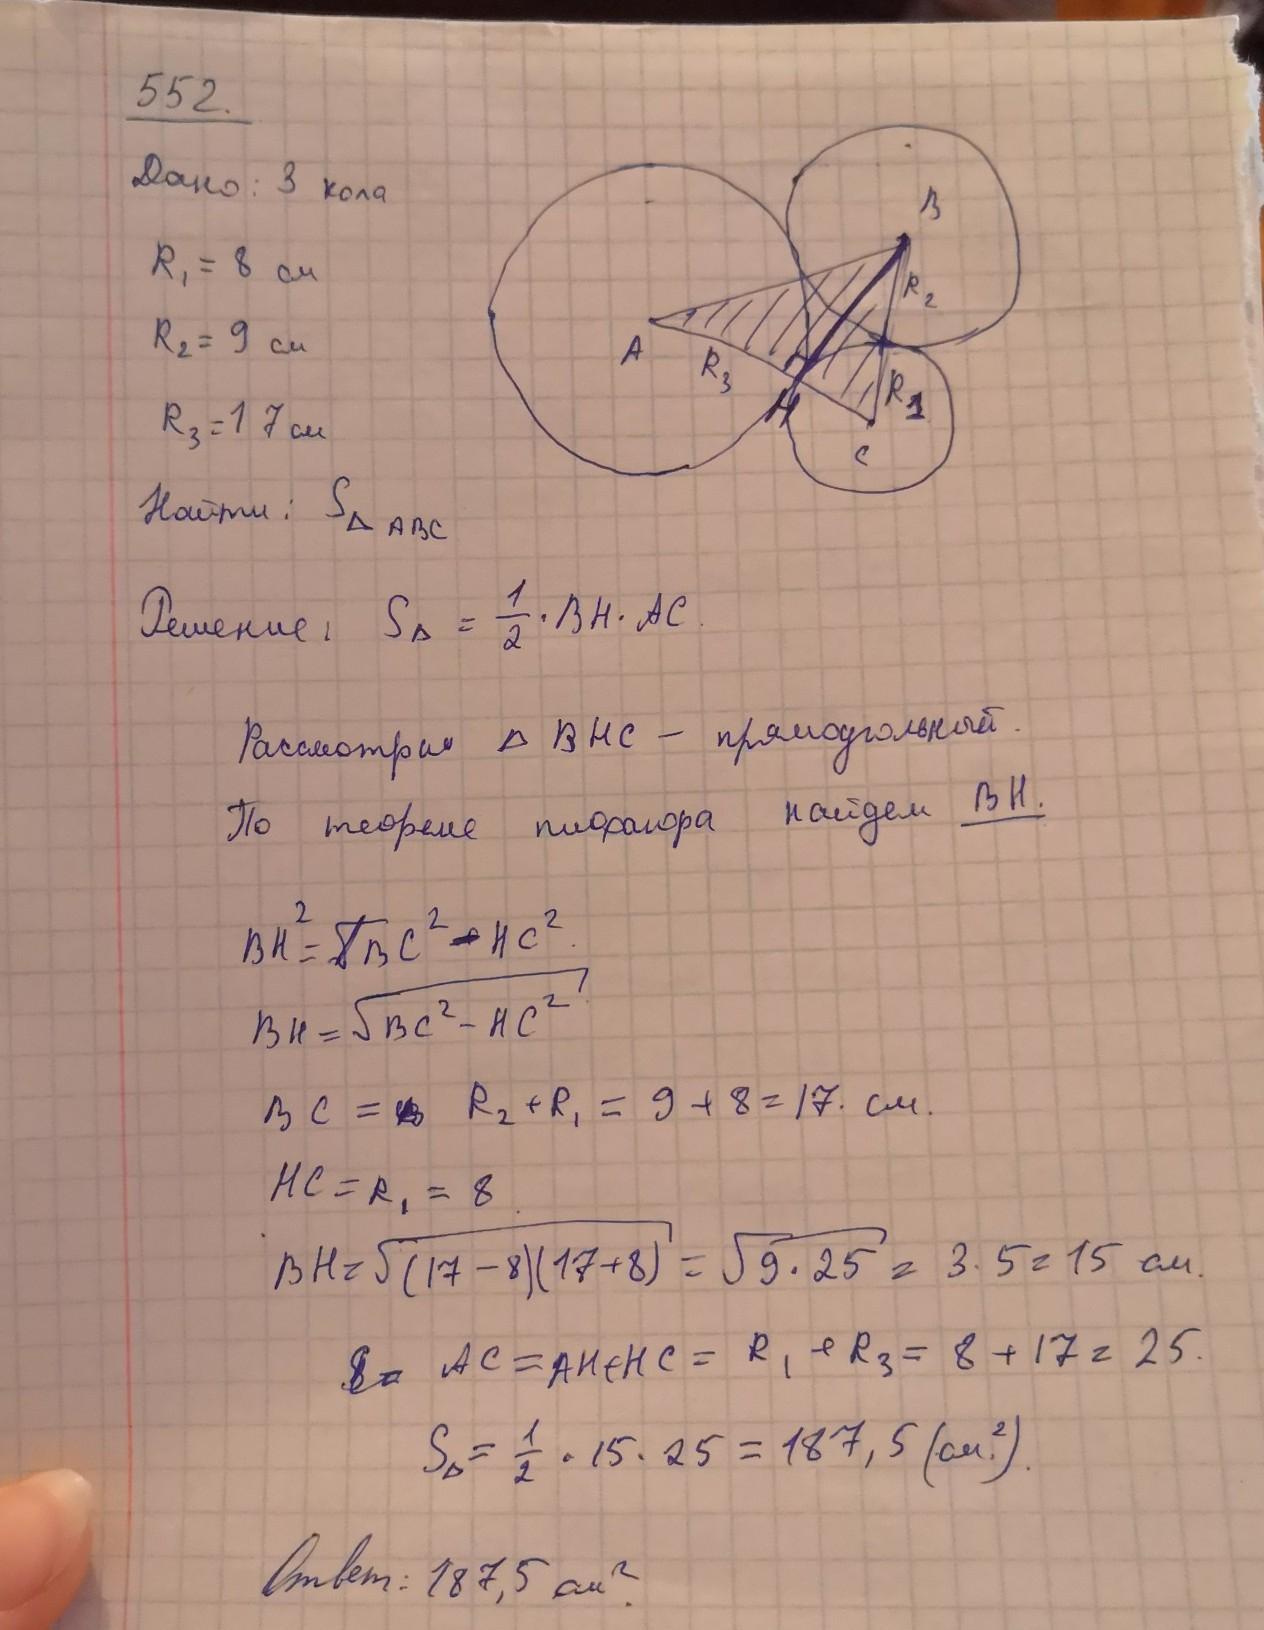 552.
Дано: 3 кола
R₁ = 8 см
R₂ = 9 см
R₃ = 17 см
Найти: S△ABC
B
R₂
A
R₃
H
R₁
C
Решение: S△ = 1/2 · BH · AC.
Рассмотрим △ BHC – прямоугольный.
По теореме пифагора найдем BH.
BH² = BC² - HC².
BH = √(BC² - HC²)
BC = R₂ + R₁ = 9 + 8 = 17 см.
HC = R₁ = 8.
BH = √((17-8)(17+8)) = √(9·25) = 3·5 = 15 см.
AC = AH+HC = R₁ + R₃ = 8 + 17 = 25.
S△ = 1/2 · 15 · 25 = 187,5 (см²).
Ответ: 187,5 см².